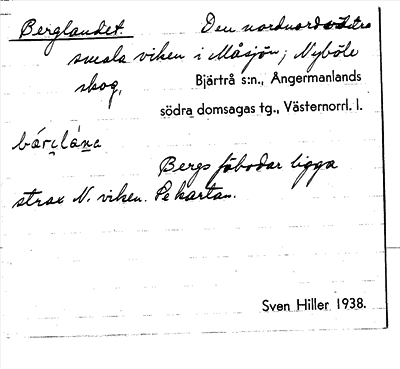 Berglandet. Den nordnordvästra
smala viken i Måsjön; Nyböle
skog,
Bjärtrå s:n., Ångermanlands
södra domsagas tg., Västernorrl. l.
Bergs fäbodar ligga
strax N. viken. Se kartan.
Sven Hiller 1938.